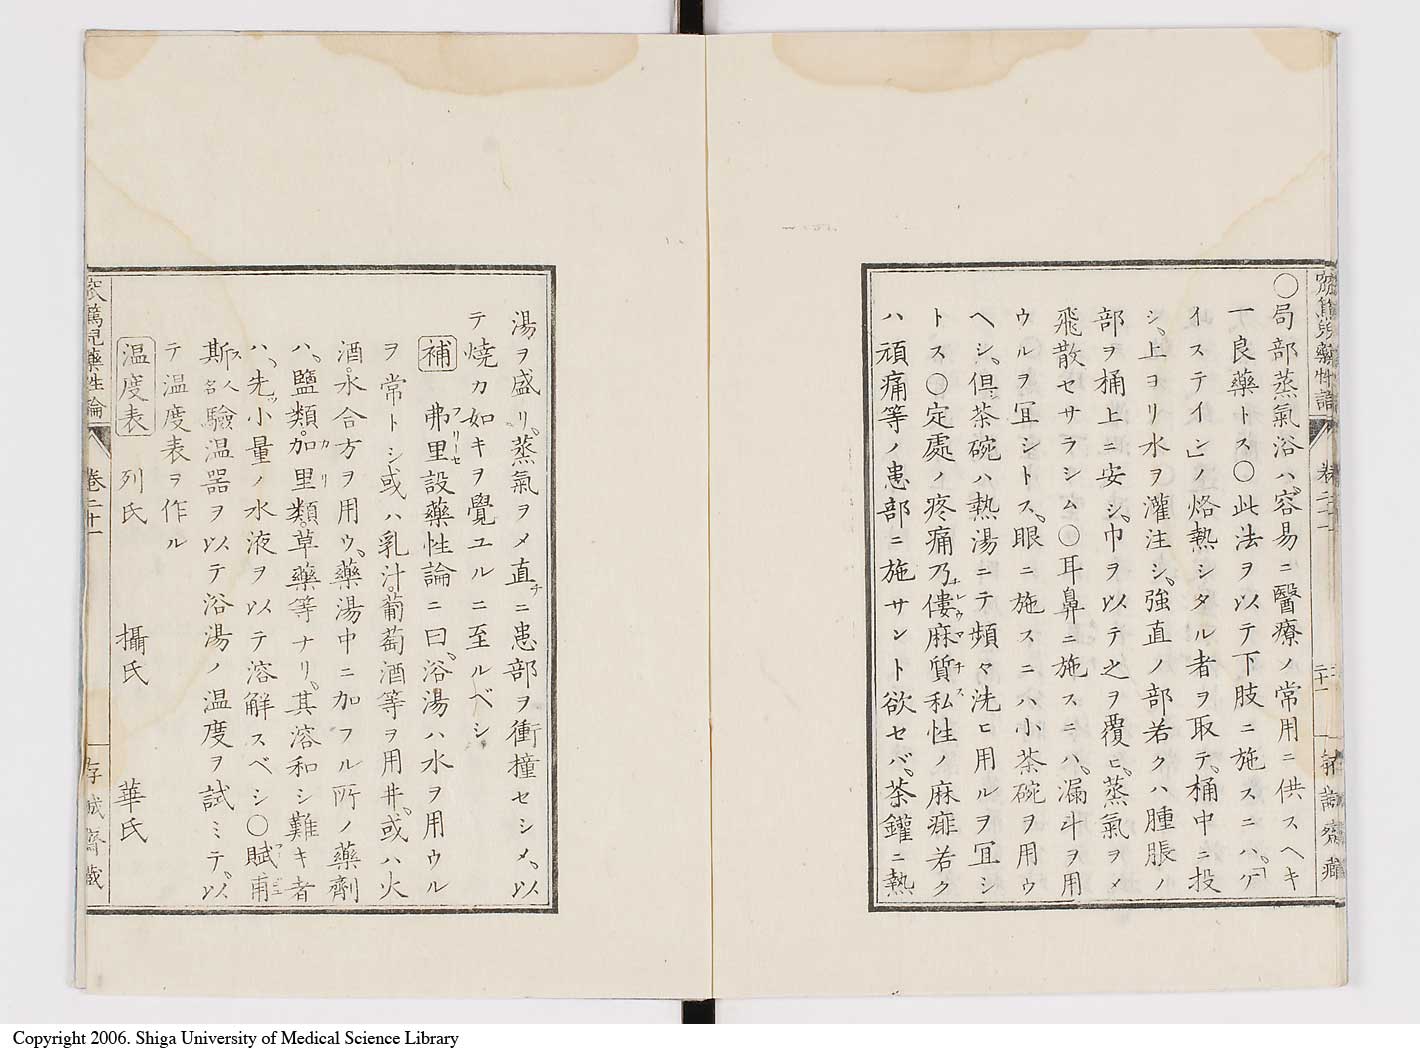 ○局部蒸氣浴ハ、容易ニ醫療ノ常用ニ供スヘキ
一良藥トス○此法ヲ以テ下肢ニ施スニハ、「ゲ
イステイン」ノ烙熱シタル者ヲ取テ、桶中ニ投
シ、上ヨリ水ヲ灌注シ、強直ノ部若クハ腫脹ノ
部ヲ桶上ニ安シ、巾ヲ以テ之ヲ覆ヒ、蒸氣ヲメ
飛散セサラシム○耳鼻ニ施スニハ、漏斗ヲ用
ウルヲ冝シトス、眼ニ施スニハ小茶碗ヲ用ウ
ヘシ、但茶碗ハ熱湯ニテ頻々洗ヒ用ルヲ冝シ
トス○定處ノ疼痛乃僂麻質私性ノ麻痱若ク
ハ頑痛等ノ患部ニ施サント欲セバ、茶鑵ニ熱
湯ヲ盛リ、蒸氣ヲメ直ニ患部ヲ衝撞セシメ、以
テ燒カ如キヲ覺ユルニ至ルベシ
補 弗里設藥性論ニ曰、浴湯ハ水ヲ用ウル
ヲ常トシ或ハ乳汁葡萄酒等ヲ用井、或ハ火
酒水合方ヲ用ウ、藥湯中ニ加フル所ノ藥劑
ハ、鹽類加里類草藥等ナリ、其溶和シ難キ者
ハ、先小量ノ水液ヲ以テ溶解スベシ○賦甫
斯人名驗温噐ヲ以テ浴湯ノ温度ヲ試ミテ、以
テ温度表ヲ作ル
温度表 列氏 攝氏 華氏
窊篤兒藥性論 卷二十一 存誠齋藏
Copyright 2006. Shiga University of Medical Science Library